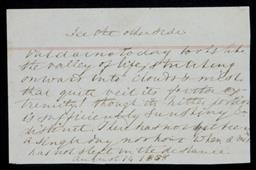 See the other side
Valdarno today looks like
the valley of life, stretching
onward into clouds & mist
that quite veil its farther ex-
tremity, though the hither portion
is sufficiently sunshiny &
distinct. There has not yet been
a single day nor hour when a mist
has not slept in the distance.
August 14 1858